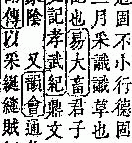 道固不小行德固
月采識識草也
也易大畜君子
記孝武紀鼎文
陰又韻會通
傳以采綖縫賊